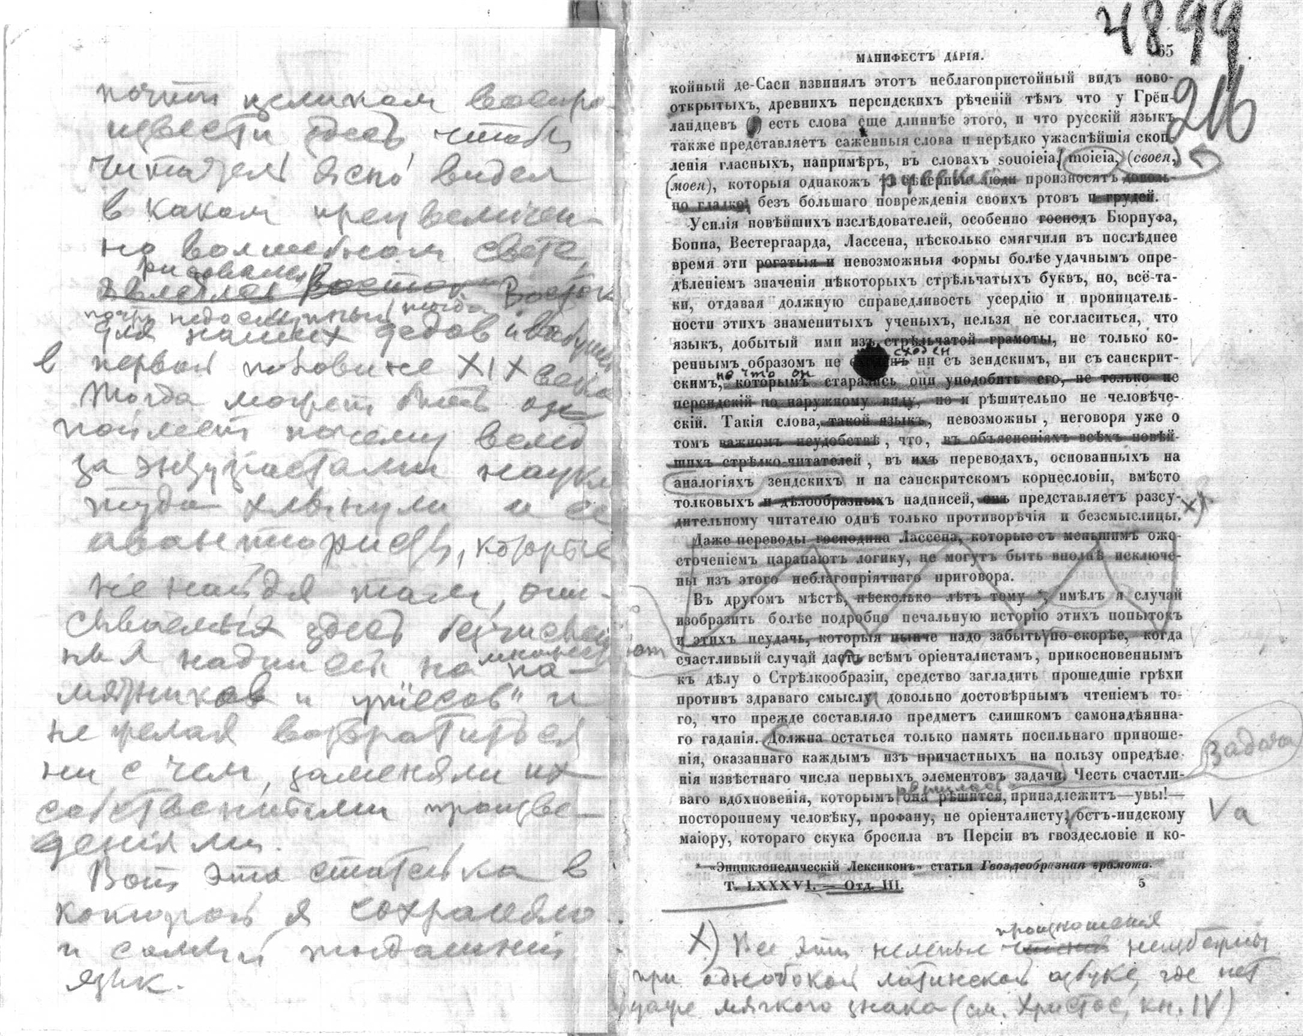 почти целиком воспро-
извести здесь чтоб
читатель ясно видел
в каком преувеличен-
но волшебном свете,
рисовался
являлся Восток Восток
почти недоступный тогда
для наших дедов и бабушек
в первой половине XIX века
Тогда может быть он
поймет почему вслед
за энтузиастами науки
туда хлынули и ее
авантюристы, которые
не найдя там, опи-
сываемых здесь бесчислен-
ных надписей на па-
мятниках и утесов" и
не желая возвратиться
ни с чем, заменяли их
собственными произве-
дениями.
Вот эта статейка в
которой я сохраняю
и самый тогдашний
язык.
4899
216
МАНИФЕСТЪ ДАРІЯ.
65
койный де-Саси извинялъ этотъ неблагопристойный видъ ново-
открытыхъ, древнихъ персидскихъ рѣченій тѣмъ что у Грён-
ландцевъ есть слова еще длиннѣе этого, и что русскій языкъ
также представляетъ саженныя слова и нерѣдко ужаснѣйшія скоп
ленія гласныхъ, напримѣръ, въ словахъ souoieia, moieia, (своея,
(моея), которыя однакожъ сѣверные люди произносятъ доволь-
но гладко, безъ большаго поврежденія своихъ ртовъ и грудей.
Усилія новѣйшихъ изслѣдователей, особенно господъ Бюрнуфа,
Боппа, Вестергаарда, Лассена, нѣсколько смягчили въ послѣднее
время эти рогатыя и невозможныя формы болѣе удачнымъ опре-
дѣленіемъ значенія нѣкоторыхъ стрѣльчатыхъ буквъ, но, всё-та-
ки, отдавая должную справедливость усердію и проницатель-
ности этихъ знаменитыхъ ученыхъ, нельзя не согласиться, что
языкъ, добытый ими изъ стрѣльчатой грамоты, не только ко-
реннымъ образомъ не сходен ни съ зендскимъ, ни съ санскрит-
но что он
скимъ, которымъ старались они уподобить его, не только не
персидскій по наружному виду, но и рѣшительно не человѣче-
скій. Такія слова, такой языкъ, невозможны, неговоря уже о
томъ важномъ неудобствѣ, что, въ объясненіяхъ всѣхъ новѣй-
шихъ стрѣлко-читателей, въ ихъ переводахъ, основанныхъ на
аналогіяхъ зендскихъ и на санскритскомъ корнесловіи, вмѣсто
толковыхъ и дѣлообразныхъ надписей, онъ представляетъ разсу-
дительному читателю однѣ только противорѣчія и безсмыслицы.
Даже переводы господина Лассена, которые съ меньшимъ оже-
сточеніемъ царапаютъ логику, не могутъ быть вполнѣ исключе-
ны изъ этого неблагопріятнаго приговора.
Въ другомъ мѣстѣ, нѣсколько лѣтъ тому имѣлъ я случай
изобразить болѣе подробно печальную исторію этихъ попытокъ
и этихъ неудачь, которыя нынче надо забыть по-скорѣе, когда
счастливый случай даетъ всѣмъ оріенталистамъ, прикосновеннымъ
къ дѣлу о Стрѣлкообразіи, средство загладить прошедшіе грѣхи
противъ здраваго смысла довольно достовѣрнымъ чтеніемъ то-
го, что прежде составляло предметъ слишкомъ самонадѣянна-
го гаданія. Должна остаться только память посильнаго приноше-
нія, оказаннаго каждымъ изъ причастныхъ на пользу опредѣле
нія извѣстнаго числа первыхъ элементовъ задачи. Честь счастли-
ваго вдохновенія, которымъ она рѣшится, принадлежитъ—увы!—
постороннему человѣку, профану, не оріенталисту, ость-индскому
маіору, котораго скука бросила въ Персіи въ гвоздесловіе и ко-
Задача
«Энциклопедическій Лексиконъ» статья Гвоздеобразная грамота.
Т. LXXXVI. — Отд. III.
5
произношения
X) Все эти нелепые неизбежны
при однобокой латинской азбуке, где нет
даже мягкого знака (см. Христос, кн. IV)